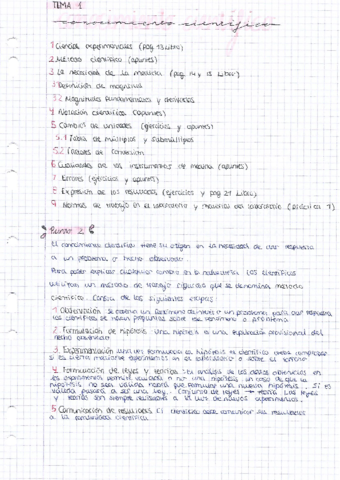 TEMA 1
conocimiento científico
1 Ciencias experimentales (pag 13 Libro)
2 Método científico (apuntes)
3 La necesidad de la medida (pag 14 y 15 Libro)
3.1 Definición de magnitud
3.2 Magnitudes fundamentales y derivadas
4 Notación científica (apuntes)
5 Cambio de unidades (ejercicios y apuntes)
5.1 Tabla de múltiplos y submúltiplos
5.2 Factores de conversión
6 Cualidades de los instrumentos de medida (apuntes)
7 Errores (ejercicios y apuntes)
8 Expresión de los resultados (ejercicios y pag 21 Libro)
9 Normas de trabajo en el laboratorio y material del laboratorio (práctica 1)
Punto 2
El conocimiento científico tiene su origen en la necesidad de dar respuesta
a un problema o hecho observado.
Para poder explicar cualquier cambio en la naturaleza los científicos
utilizan un método de trabajo riguroso que se denomina método
científico. Consta de las siguientes etapas:
1 Observación se observa un fenómeno para dar respuesta
los científicos se hacen preguntas sobre ese fenómeno o problema
2 Formulación de hipótesis una hipótesis es una explicación provisional del
hecho observado
3 Experimentación una vez formulada la hipótesis el científico debe comprobar
si es cierta mediante experimentos en el laboratorio o sobre el terreno
4 Formulación de leyes y teorías el análisis de los datos obtenidos en
los experimentos permite validar o no una hipótesis en caso de que la
hipótesis no sea válida habrá que formular una nueva hipótesis. Si es
válida pasará a ser una ley. Conjunto de leyes → teoría Las leyes
y teorías son siempre revisables a la luz de nuevos experimentos.
5 Comunicación de resultados El científico debe comunicar sus resultados
a la comunidad científica.